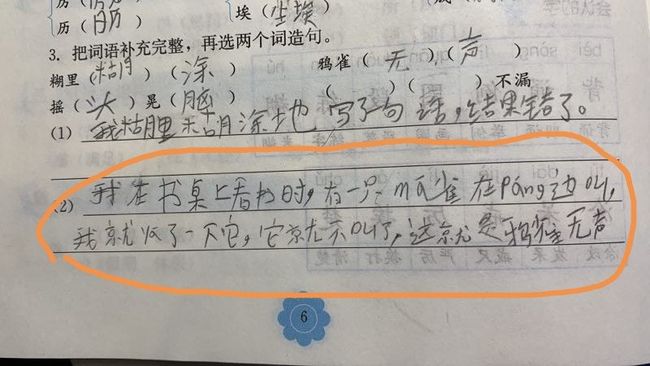 历（
历（厨） 埃（尘埃）
3. 把词语补充完整，再选两个词造句。
糊里（糊）（涂） 鸦雀（无）（声）
摇（头）晃（脑） （ ）（ ）不漏
(1) 我糊里糊涂地写了句话，结果错了。
(2) 我在书桌上看书时，有一只má雀在páng边叫，
我就 了一下它，它就不叫了，这就是鸦雀无声
6